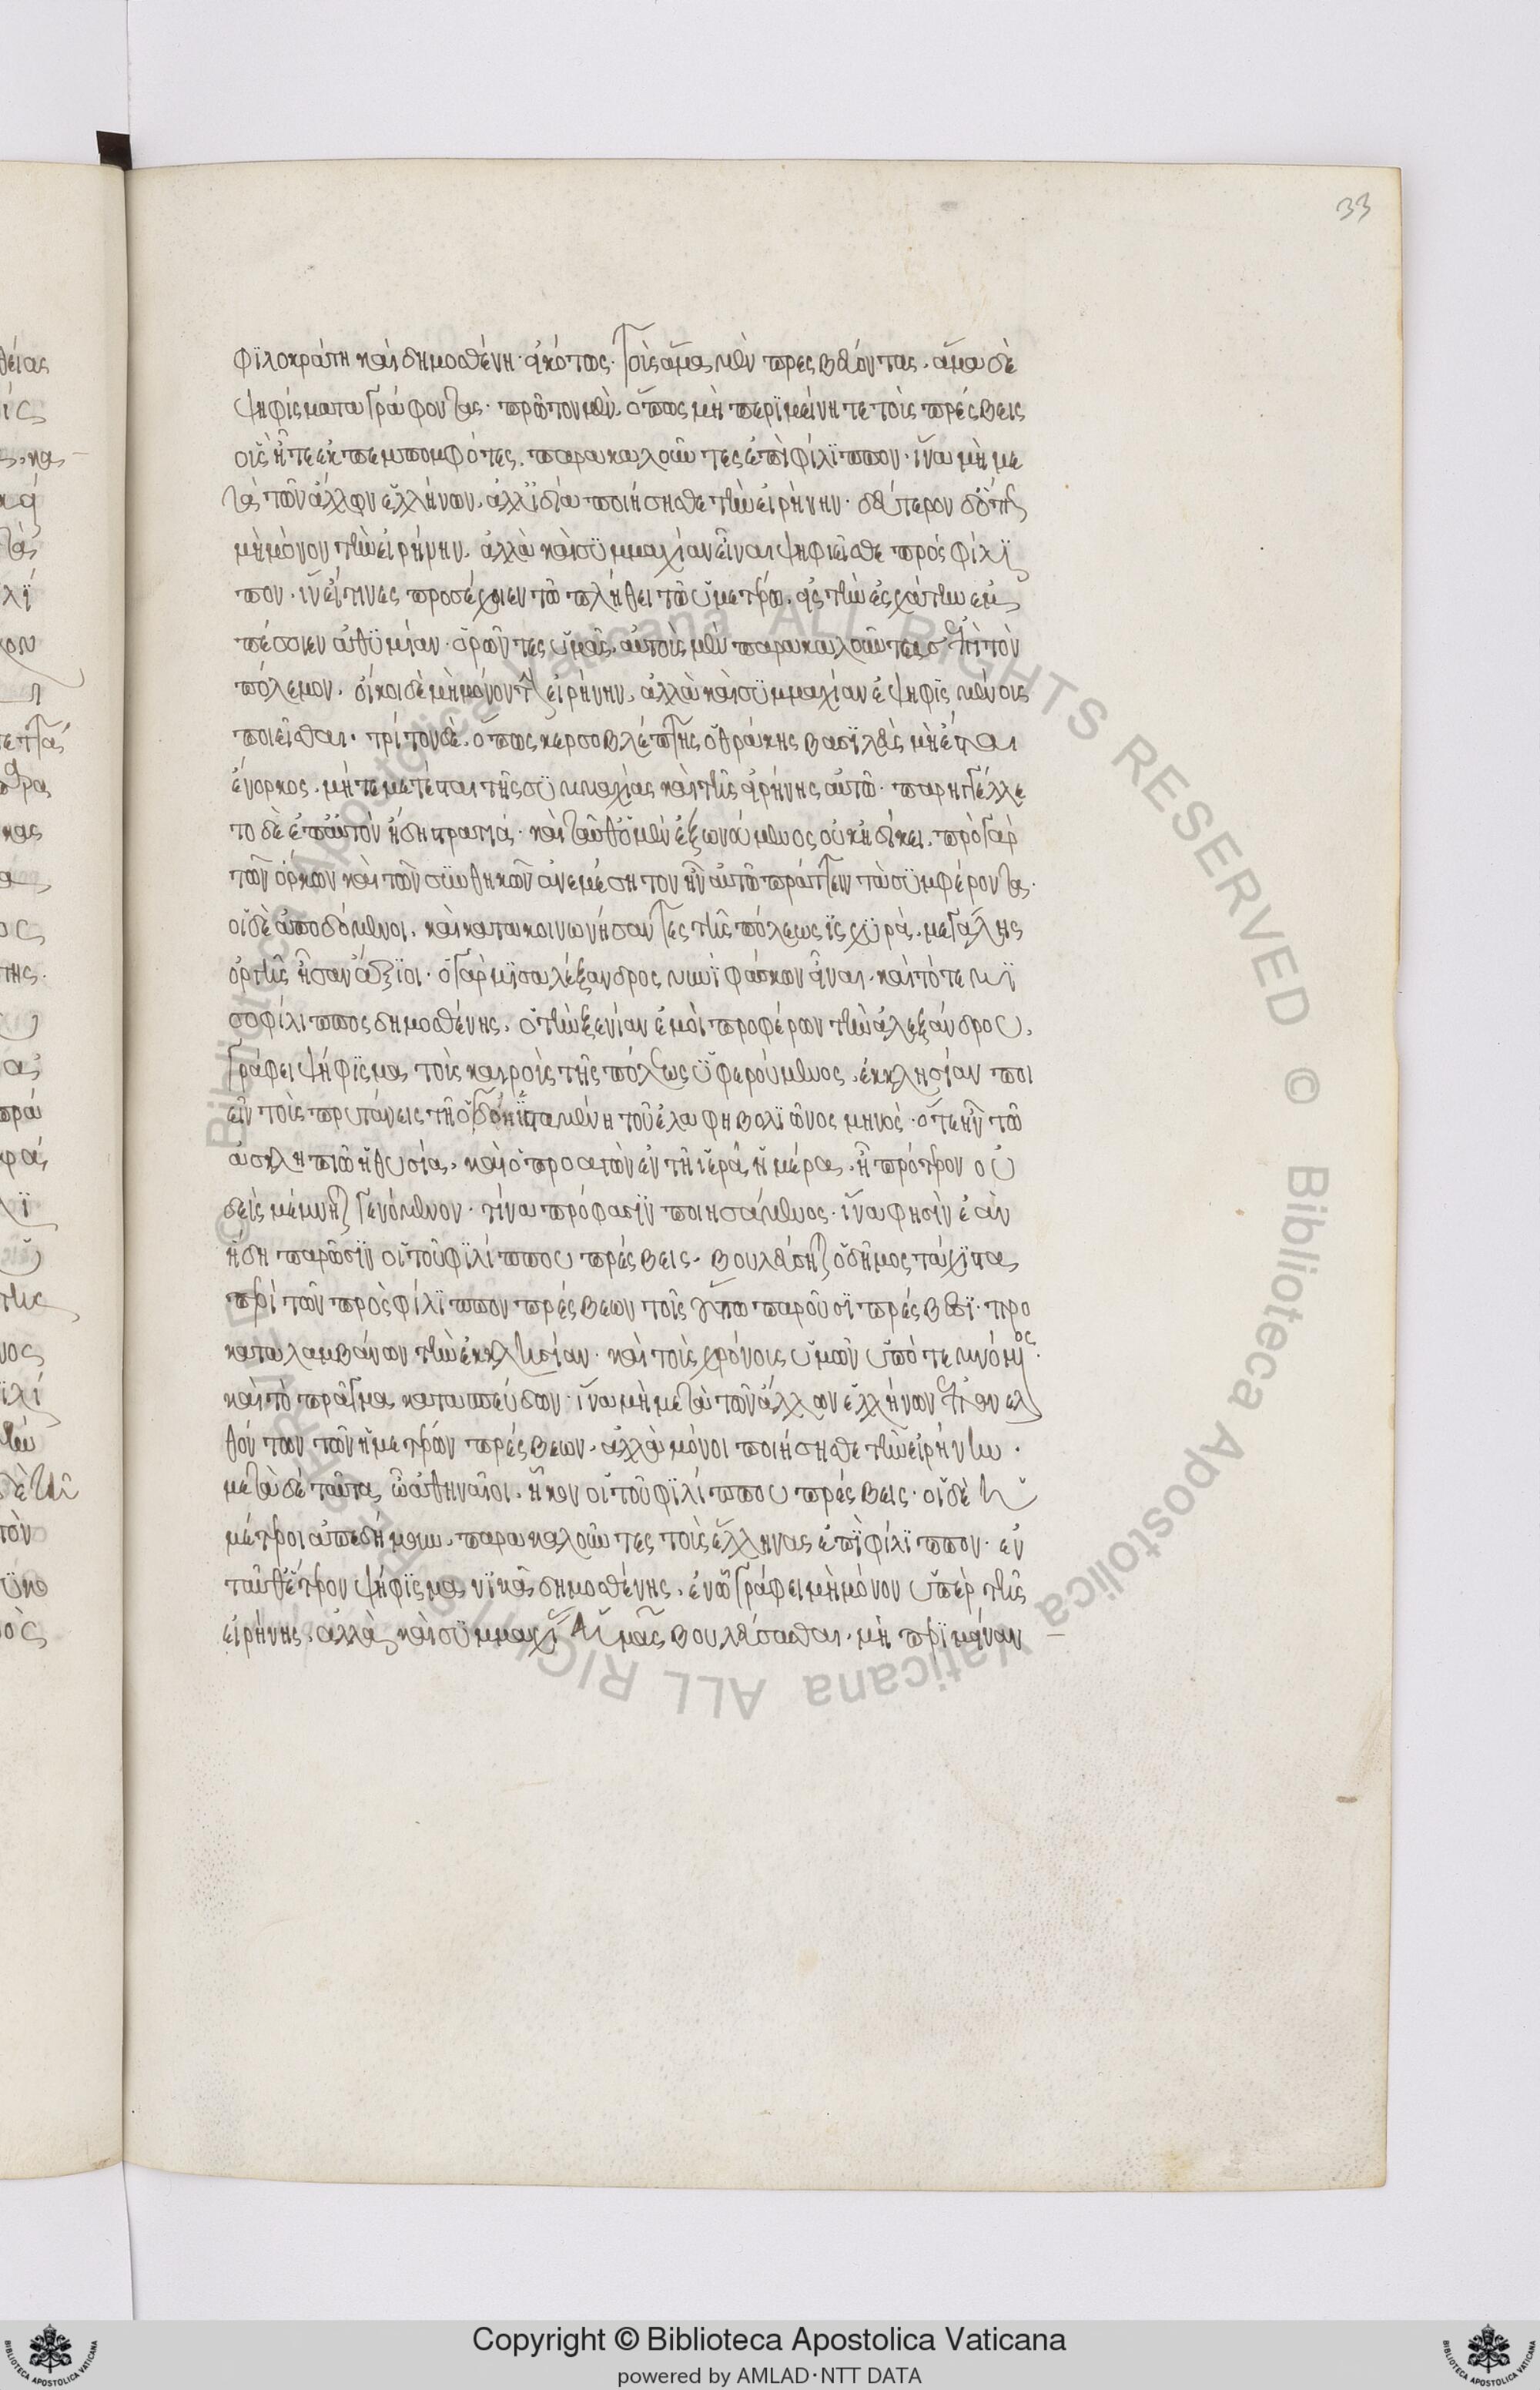 33
φιλοκράτη καὶ δημοσθένη· εἰκότως· τοῖς ἅμα μὲν πρεσβεύοντας, ἅμα δὲ
ψηφίσματα γράφοντας· πρῶτον μὲν, ὅπως μὴ περιμείνητε τοὺς πρέσβεις
οὓς ἦτε ἐκπεπομφότες, παρακαλοῦντες ἐπὶ φίλιππον· ἵνα μὴ με
τὰ τῶν ἄλλων ἑλλήνων, ἀλλ' ἰδία ποιήσησθε τὴν εἰρήνην· δεύτερον δ' ὅπως
μὴ μόνον τὴν εἰρήνην, ἀλλὰ καὶ συμμαχίαν εἶναι ψηφιεῖσθε πρὸς φίλιπ
πον· ἵν' εἴ τινες προσέχοιεν τῶ πλήθει τῶ ὑμετέρω, εἰς τὴν ἐσχάτην ἐμ
πέσοιεν ἀθυμίαν· ὁρῶντες ὑμᾶς, αὐτοὺς μὲν παρακαλοῦντας ἐπὶ τὸν
πόλεμον, οἴκοι δὲ μὴ μόνον τὴν εἰρήνην, ἀλλὰ καὶ συμμαχίαν ἐψηφισμένους
ποιεῖσθαι· τρίτον δὲ, ὅπως κερσοβλέπτης ὁ θράκης βασιλεὺς μὴ ἔσται
ἔνορκος, μήτε μετέσται τῆς συμμαχίας καὶ τῆς εἰρήνης αὐτῶ· παρηγγέλλε
το δὲ ἐπ' αὐτὸν ἤδη στρατιά· καὶ ταῦθ' ὁ μὲν ἐξωνούμενος οὐκ ἠδίκει, πρὸ γὰρ
τῶν ὅρκων καὶ τῶν συνθηκῶν ἀνεμέσητον ἦν αὐτῶ πράττειν τὰ συμφέροντα·
οἱ δὲ ἀποδόμενοι, καὶ κατακοινωνήσαντες τῆς πόλεως ἰσχυρὰ, μεγάλης
ὀργῆς ἦσαν ἄξιοι· ὁ γὰρ μισαλέξανδρος νυνὶ φάσκων εἶναι, καὶ τότε μι
σοφίλιππος δημοσθένης, ὁ τὴν ξενίαν ἐμοὶ προφέρων τὴν ἀλεξάνδρου,
γράφει ψήφισμα τοὺς καιροὺς τῆς πόλεως ὑφερούμενος, ἐκκλησίαν ποι
εῖν τοὺς πρυτάνεις τῆ ὀγδόη ἱσταμένη τοῦ ἐλαφηβολιῶνος μηνὸς· ὅτε ἦν τῶ
ἀσκληπιῶ ἡ θυσία, καὶ ὁ προαγὼν ἐν τῆ ἱερᾶ ἡμέρα, ὃ πρότερον οὐ
δεὶς μέμνηται γενόμενον· τίνα πρόφασιν ποιησάμενος· ἵνα φησὶν ἐὰν
ἤδη παρῶσιν οἱ τοῦ φιλίππου πρέσβεις, βουλεύσηται ὁ δῆμος τάχιστα
περὶ τῶν πρὸς φίλιππον πρέσβεων τοῖς οὔπω παροῦσι πρέσβεσι· προ
καταλαμβάνων τὴν ἐκκλησίαν· καὶ τοὺς χρόνους ὑμῶν ὑποτεμνόμενος·
καὶ τὸ πρᾶγμα κατασπεύδων· ἵνα μὴ μετὰ τῶν ἄλλων ἑλλήνων ἐπανελ
θόντων τῶν ἡμετέρων πρέσβεων, ἀλλὰ μόνοι ποιήσησθε τὴν εἰρήνην·
μετὰ δὲ ταῦτα ὦ ἀθηναῖοι, ἧκον οἱ τοῦ φιλίππου πρέσβεις· οἱ δὲ ὑ
μέτεροι ἀπεδήμουν, παρακαλοῦντες τοὺς ἕλληνας ἐπὶ φίλιππον· ἐν
ταῦθ' ἕτερον ψήφισμα νικᾶ δημοσθένης, ἐν ὧ γράφει μὴ μόνον ὑπὲρ τῆς
εἰρήνης, ἀλλὰ καὶ συμμαχίας ὑμᾶς βουλεύσασθαι, μὴ περιμείναν
Copyright © Biblioteca Apostolica Vaticana
powered by AMLAD·NTT DATA